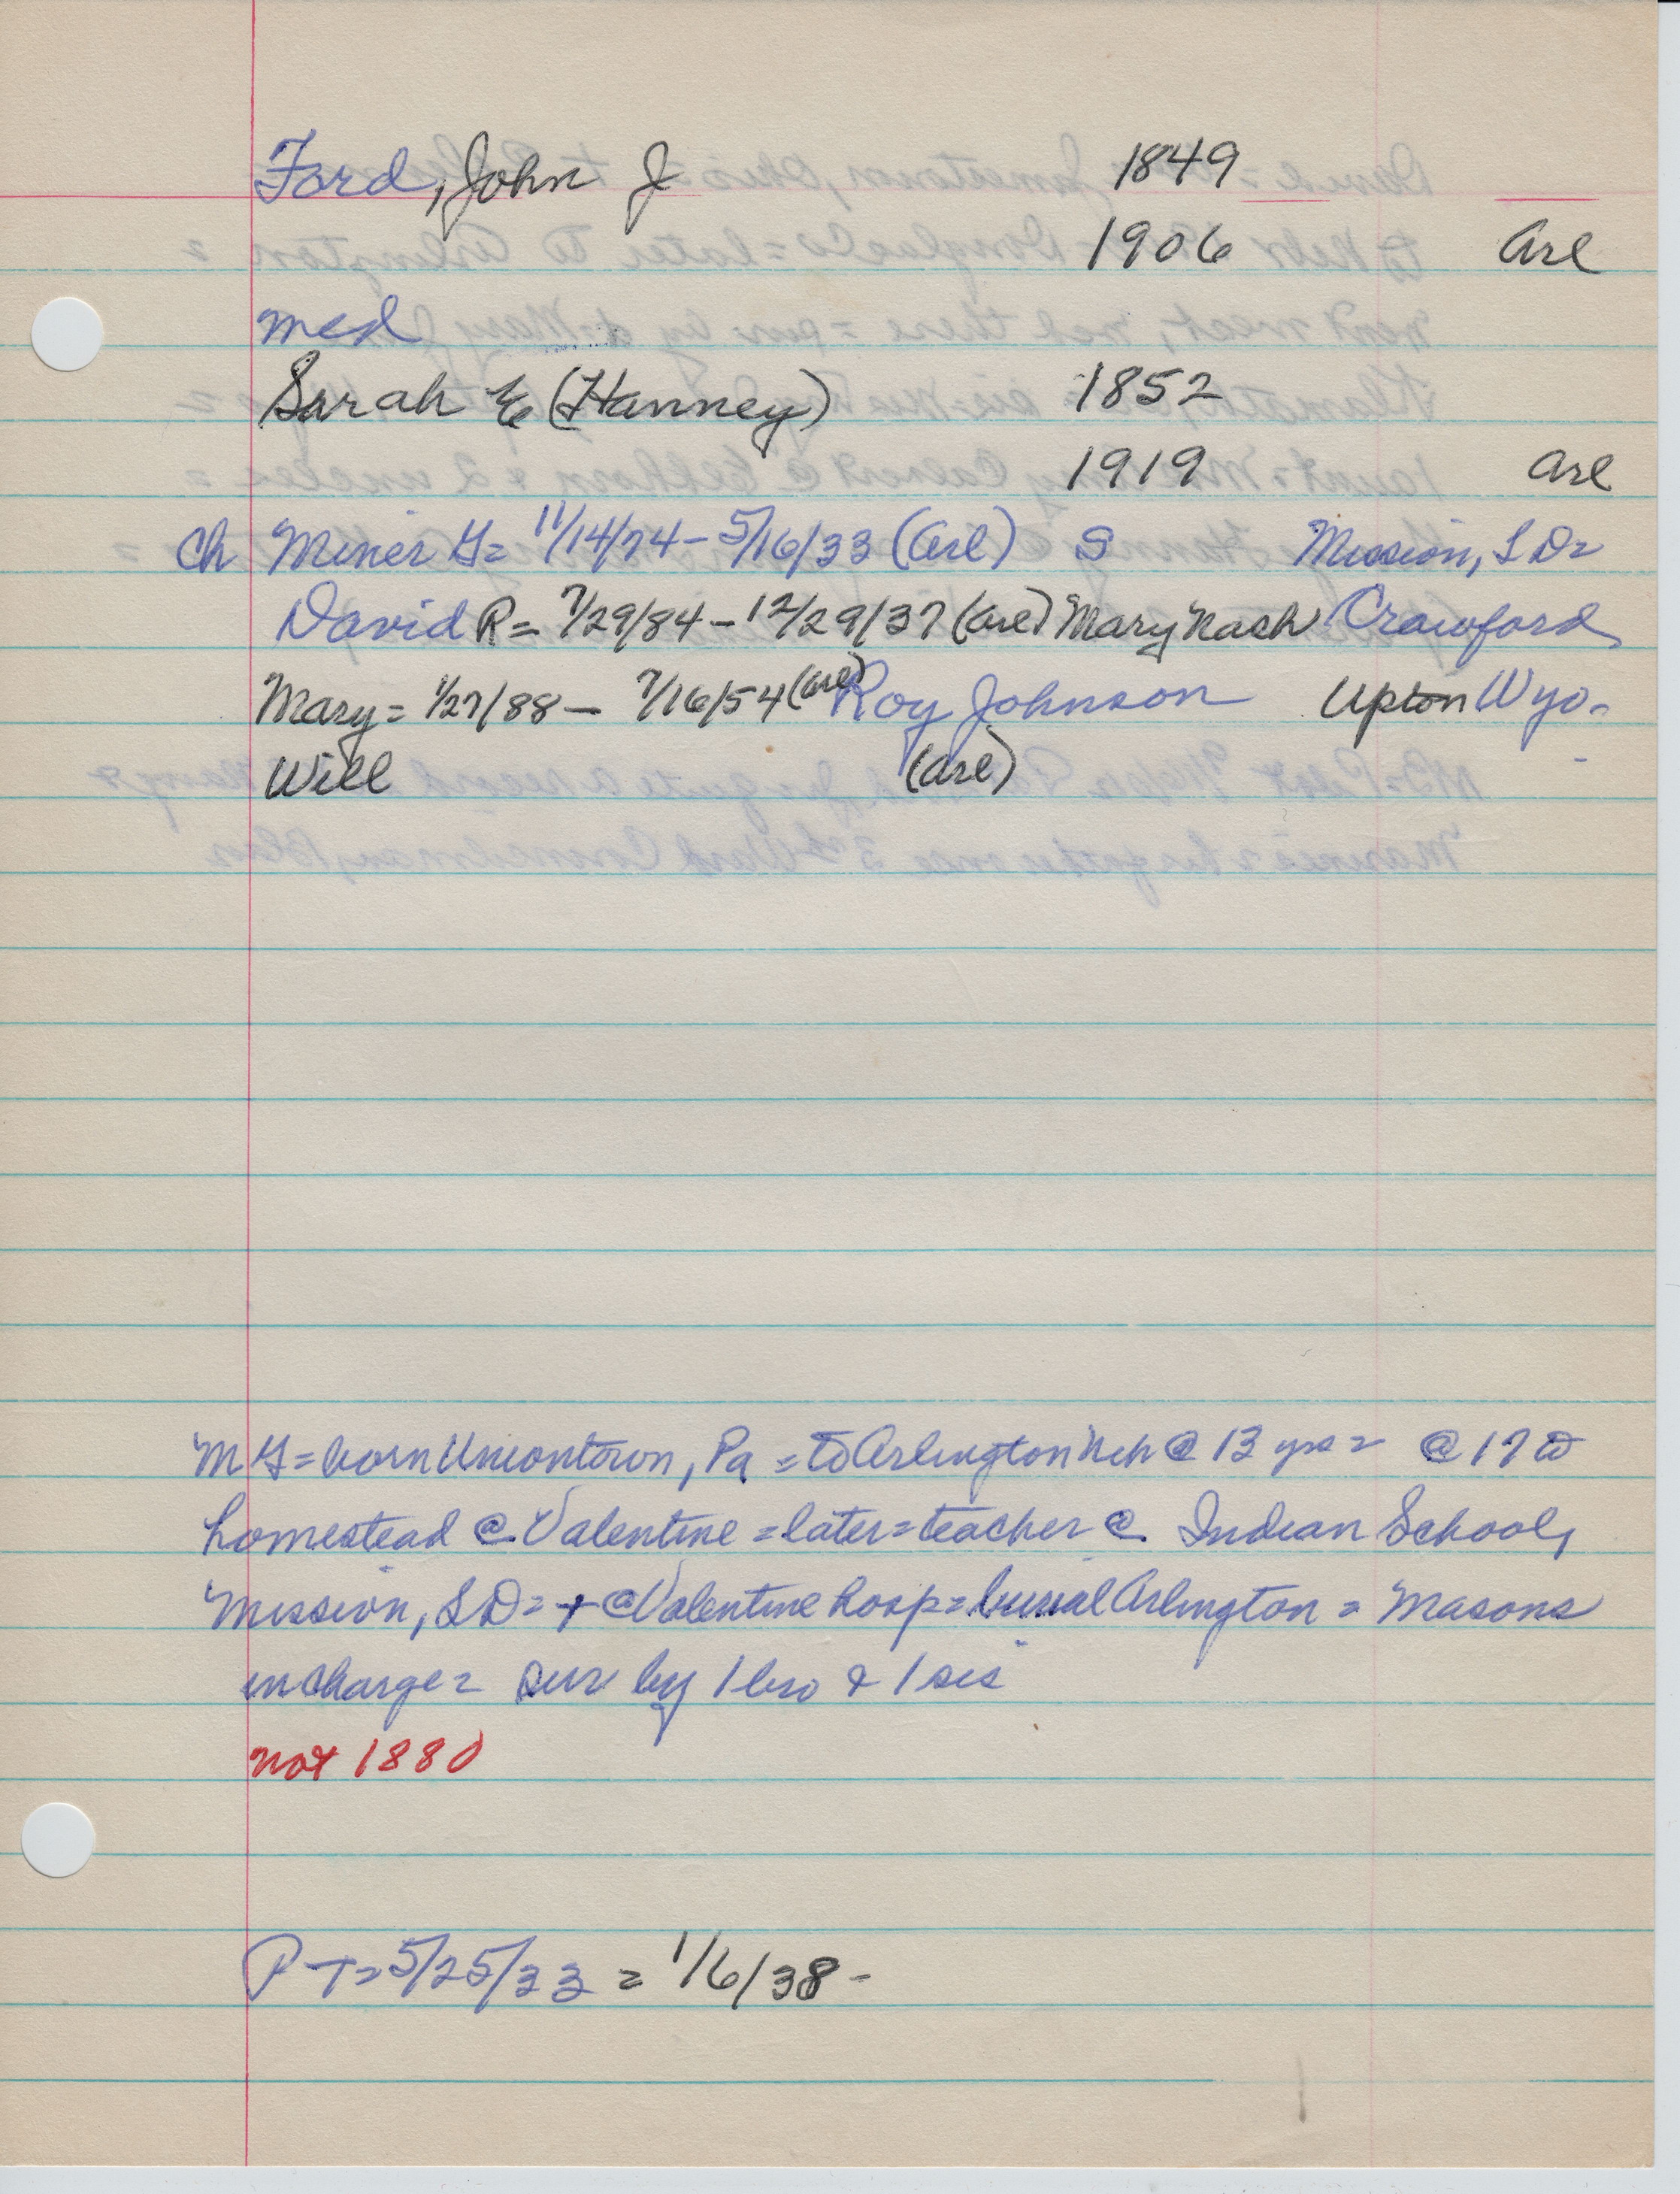 Ford, John J 1849
1906 Arl
med
Sarah E (Hanney) 1852
1919 Arl
Ch Miner G= 11/14/74 - 5/16/33 (Arl) S Mission, S D=
David R= 7/29/84 - 12/29/37 (Arl) Mary Nash Crawford
Mary = 1/27/88 - 7/16/54 (Arl) Roy Johnson Upton Wyo-
Will (Arl)
M G = born Uniontown, Pa = to Arlington Neb @ 13 yrs = @ 17 to
homestead @ Valentine = later = teacher @ Indian School,
Mission, S D = + @ Valentine hosp = burial Arlington = Masons
in charge = sur by 1 bro & 1 sis
not 1880
P T = 5/25/33 = 1/6/38 -